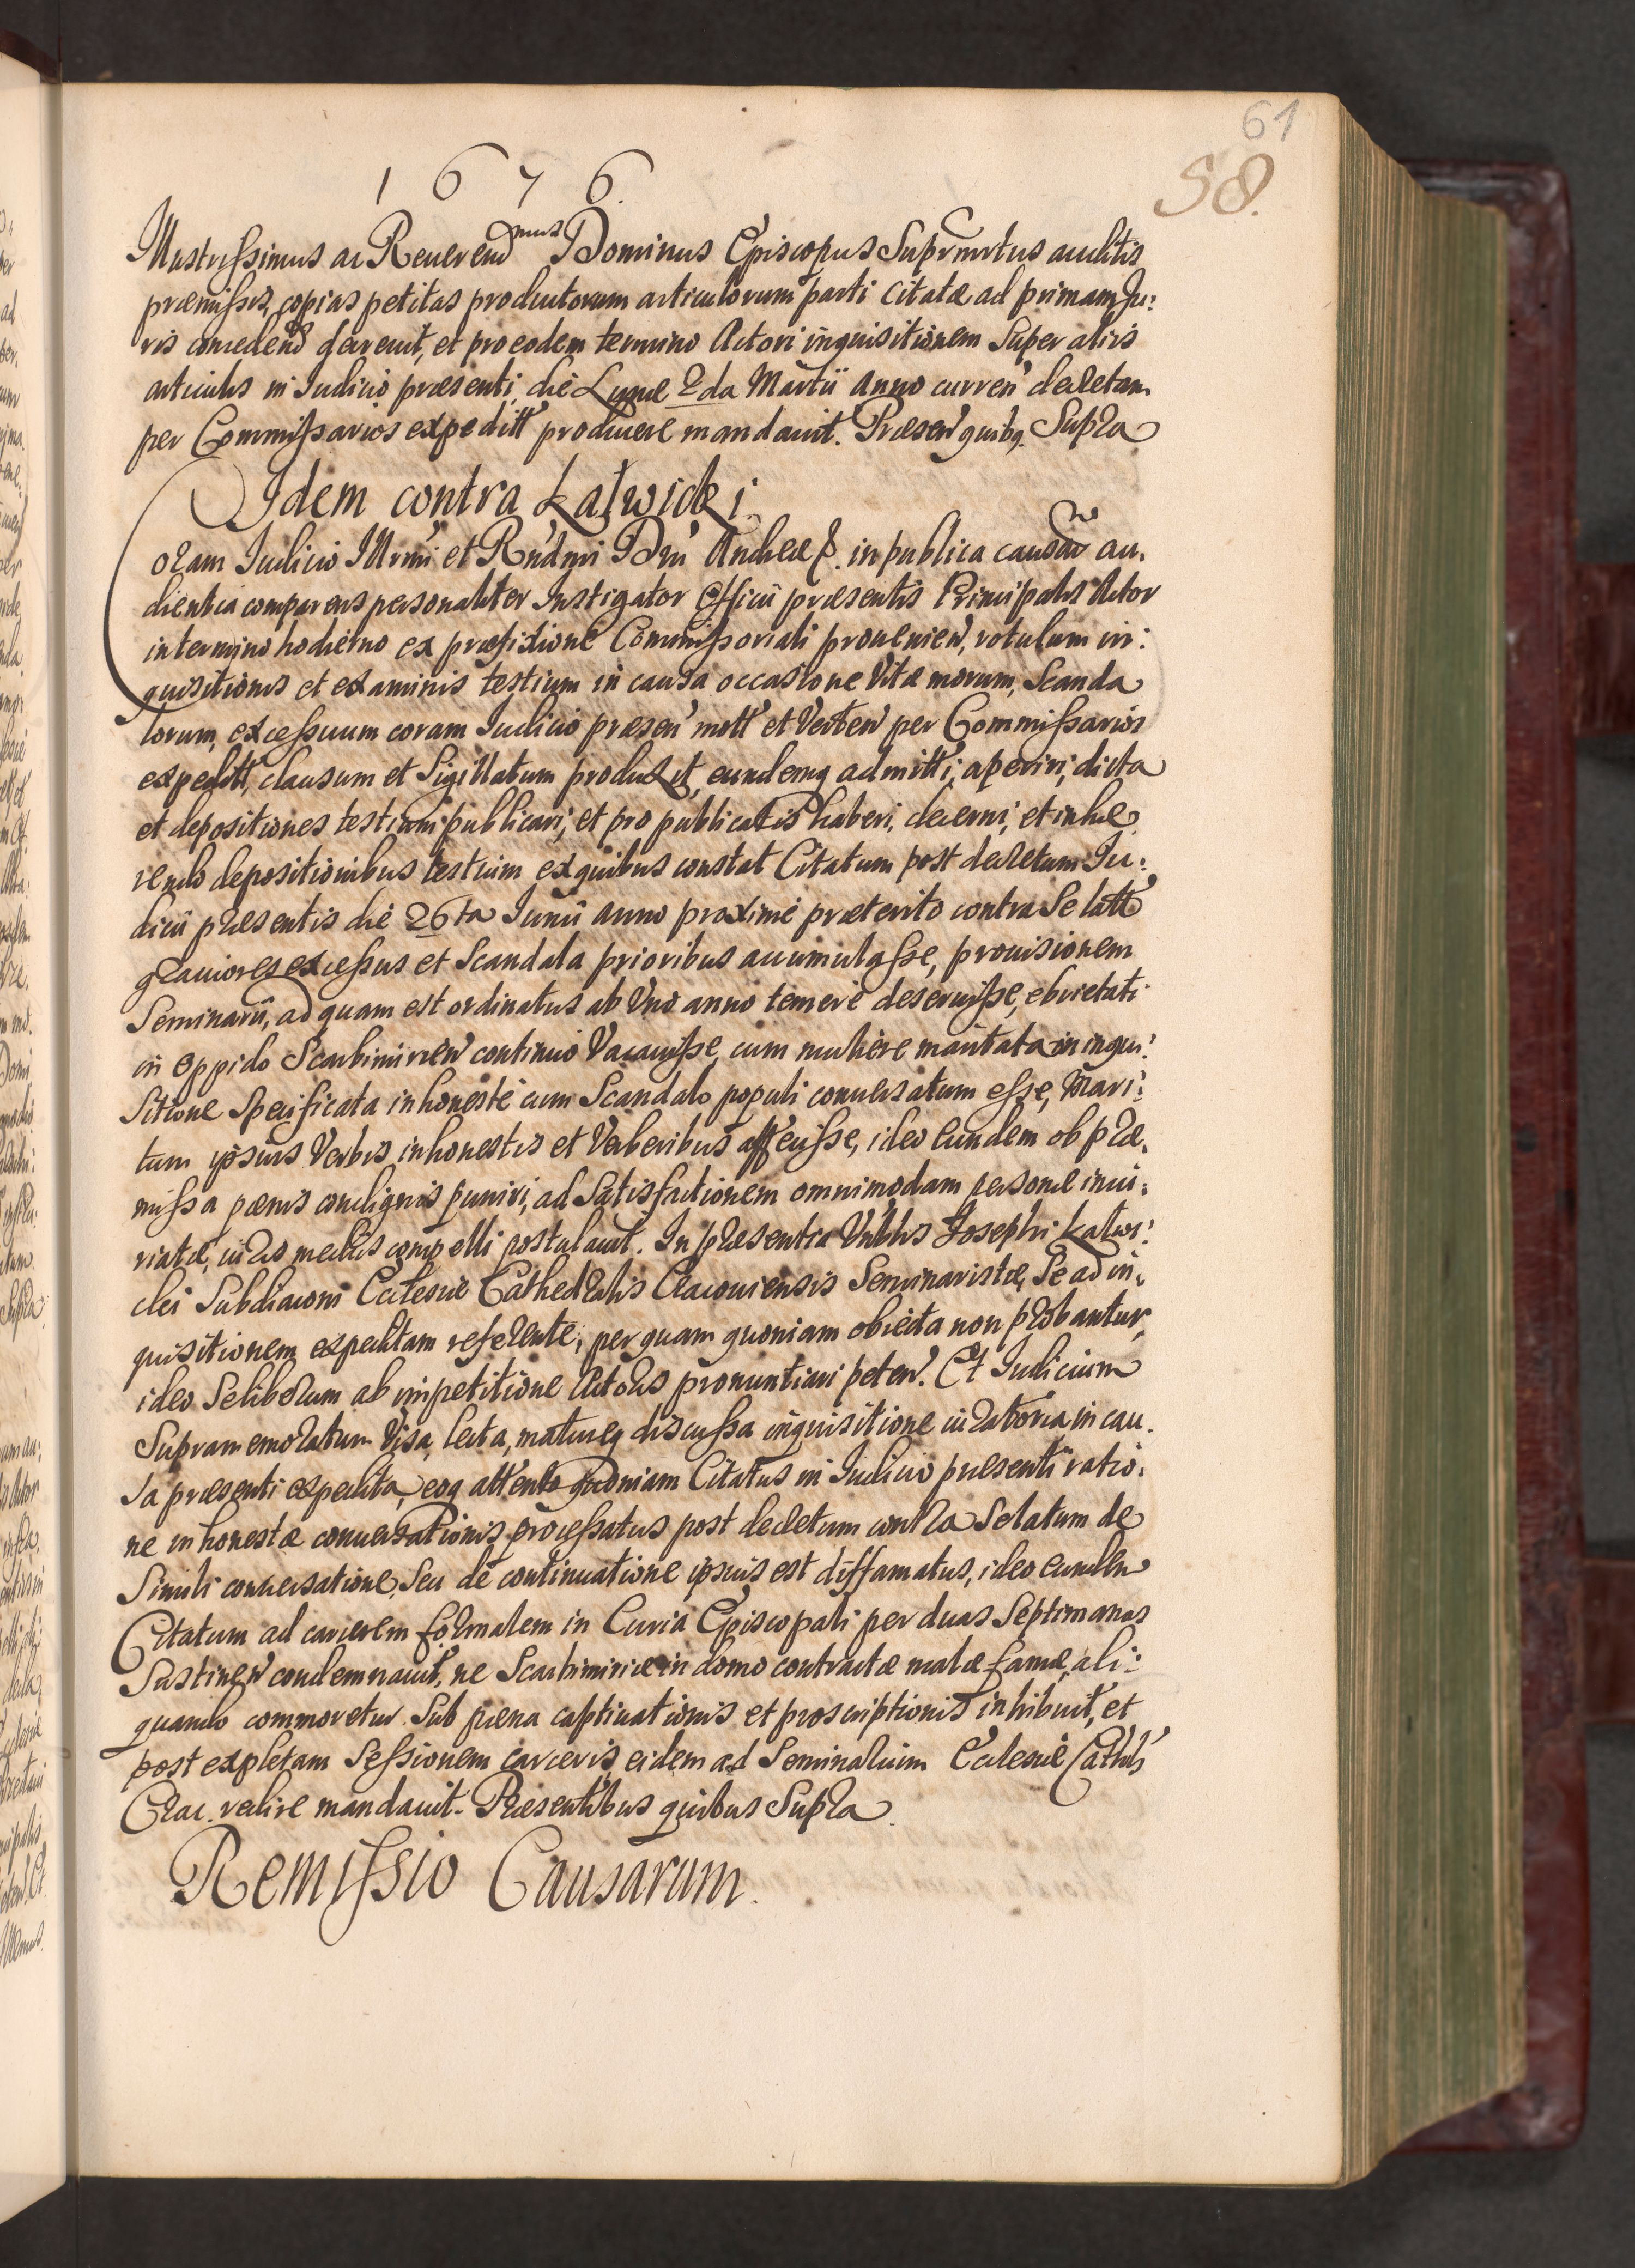 61
58.
1676.
Illustrissimus ac Reuerend mus Dominus Episcopus Suprmrtus auditis
præmissis, copias petitas productorum articulorum parti Citatæ ad primam Ju:
ris concedend decreuit, et pro eodem termino Actori inquisitionem Super aliis
articulis in Iudicio præsenti die Lunæ 2da Martii Anno curren decretam
per Commissarios expeditt producere mandauit. Præsen quibq Supra
Idem contra Łatwicki
Coram Iudicio Illrmi et Rndmi Dni Andreæ p. in publica causar au.
dientia comparens personaliter Instigator Officii præsentis Principalis Actor
in termino hodierno ex præfixione Commissoriali prouenien, rotulum in:
quisitionis et examinis testium in causa occasione Vitæ morum, Scanda
lorum, excessuum coram Iudicio præsen mott et Verten per Commissarios
expeditt, clausum et Sigillatum produxit, eundemq admitti, aperiri, dicta
et depositiones testium publicari, et pro publicatis haberi, decerni, et inhæ
rendo depositionibus testium ex quibus constat Citatum post decretum Iu:
dicii præsentis die 26ta Iunii anno proxime præterito contra Se latt
grauiores excessus et Scandala prioribus accumulasse, prouisionem
Seminarii, ad quam est ordinatus ab Vno anno temere deseruisse, ebrietati
in oppido Scarbimirien continuo Vacauisse, cum muliere maritata in inqui:
sitione Specificata inhoneste cum Scandalo populi conuersatum esse, Mari:
tum ipsius Verbis inhonestis et Verberibus affecisse, ideo Eundem ob præ.
missa pænis condignis puniri, ad Satisfactionem omnimodam personæ iniu:
riatæ, iuris mediis compelli postulauit. In præsentia Vnblis Josephi Łatwi:
cki Subdiaconi Ecclesiæ Cathedralis Cracouiensis Seminaristæ, Se ad in:
quisitionem expeditam referente, per quam quoniam obiecta non probantur,
ideo Se liberum ab impetitione Actoris pronuntiari peten. Et Iudicium
Supramemoratum Visa, lecta, matureq discussa inquisitione iuratoria in cau.
sa præsenti expedita, eoq attento quoniam Citatus in Iudicio præsenti ratio:
ne inhonestæ conuersationis processatus post decretum contra Se latum de
Simili conuersatione, Seu de continuatione ipsius est diffamatus, ideo eundem
Citatum ad carcerem formalem in Curia Episcopali per duas Septimanas
Sustinen condemnauit, ne Scarbimiriæ in domo contractæ malæ famæ, ali:
quando commoretur Sub pæna captiuationis et proscriptionis inhibuit, et
post expletam Sessionem carceris, eidem ad Seminarium Ecclesiæ Cathlis
Crac. redire mandauit. Præsentibus quibus Supra.
Remissio Causarum.